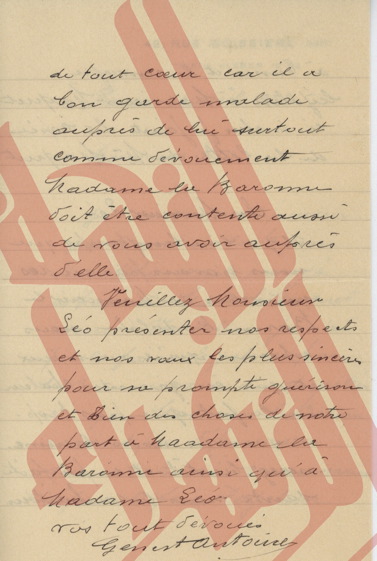 de tout cœur car il a
bon garde malade
auprès de lui surtout
comme dévouement
Madame la Baronne
doit être contente aussi
de vous avoir auprès
d'elle
Veuillez Monsieur
Léo presenter nos respects
et nos vœux les plus sincères
pour sa prompte guérison
et bien des choses de notre
part a Maadame la
Baronne ainsi qu'à
Madame Léo
vos tout dévoués
Genest Antoine